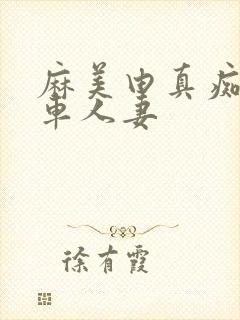 麻美由真痴
車人妻
徐有霞